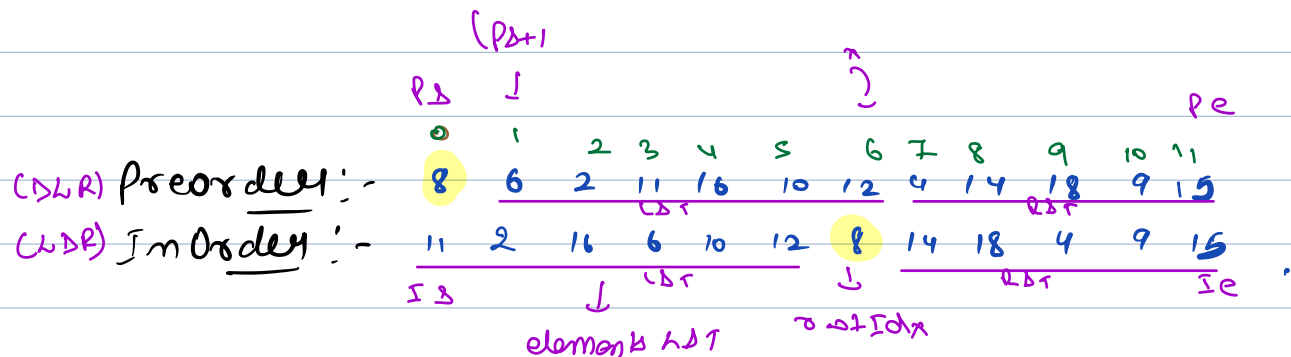 (Ps+1
x
Ps Pe
0 1 2 3 4 5 6 7 8 9 10 11
(DLR) Preorder :- 8 6 2 11 16 10 12 4 14 18 9 15
LST RST
(LDR) InOrder :- 11 2 16 6 10 12 8 14 18 4 9 15
LST RST
Is Ie
elements LST rootIdx